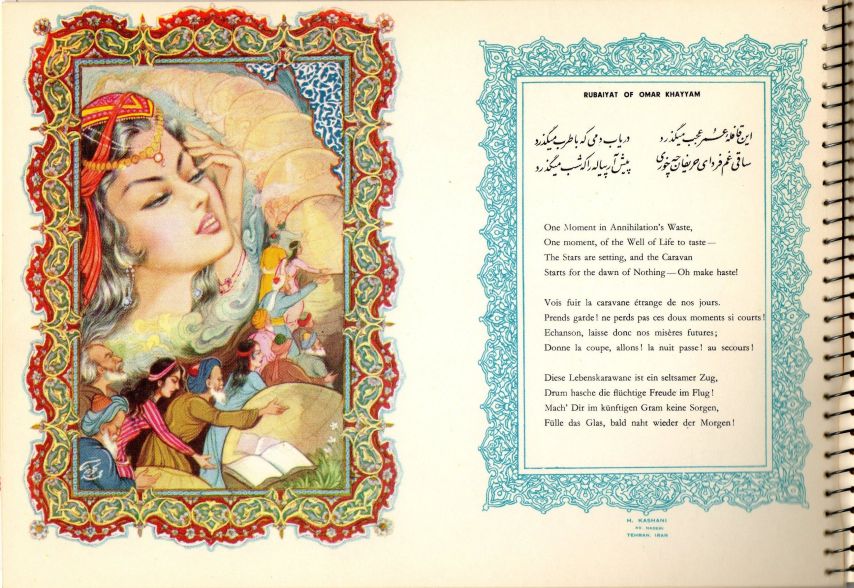 RUBAIYAT OF OMAR KHAYYAM
این قافلهٔ عمر عجب میگذرد دریاب دمی که با طرب میگذرد
ساقی غم فردای حریفان چه خوری پیش آر پیاله را که شب میگذرد
One Moment in Annihilation's Waste,
One moment, of the Well of Life to taste—
The Stars are setting, and the Caravan
Starts for the dawn of Nothing—Oh make haste!
Vois fuir la caravane étrange de nos jours.
Prends garde! ne perds pas ces doux moments si courts!
Echanson, laisse donc nos misères futures;
Donne la coupe, allons! la nuit passe! au secours!
Diese Lebenskarawane ist ein seltsamer Zug,
Drum hasche die flüchtige Freude im Flug!
Mach' Dir im künftigen Gram keine Sorgen,
Fülle das Glas, bald naht wieder der Morgen!
H. KASHANI
AV. NADERI
TEHRAN, IRAN